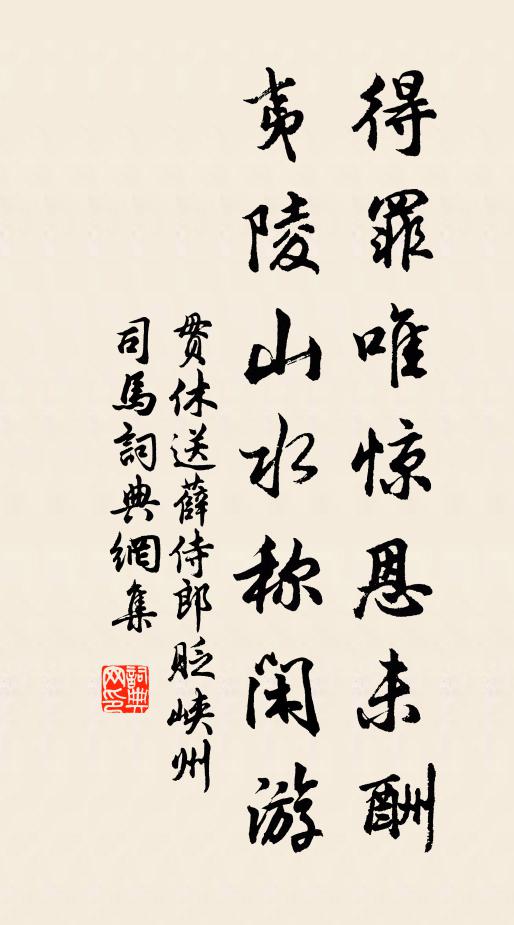 得罪唯惊恩未酬
夷陵山水称闲游
贯休送薛侍郎贬峡州
司馬詞典網集
詞典網印